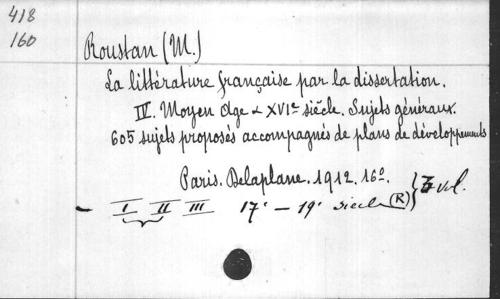 418
160
Roustan (M.)
La littérature française par la dissertation.
IV. Moyen Age & XVIe siècle. Sujets généraux.
605 sujets proposés accompagnés de plans de développements
Paris. Delaplane. 1912. 16º.
vol.
- I II III 17e - 19e siècle (R)